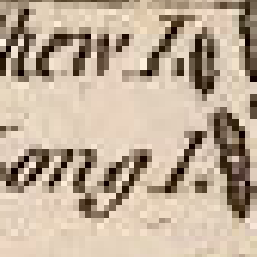 hew I.
ong I.